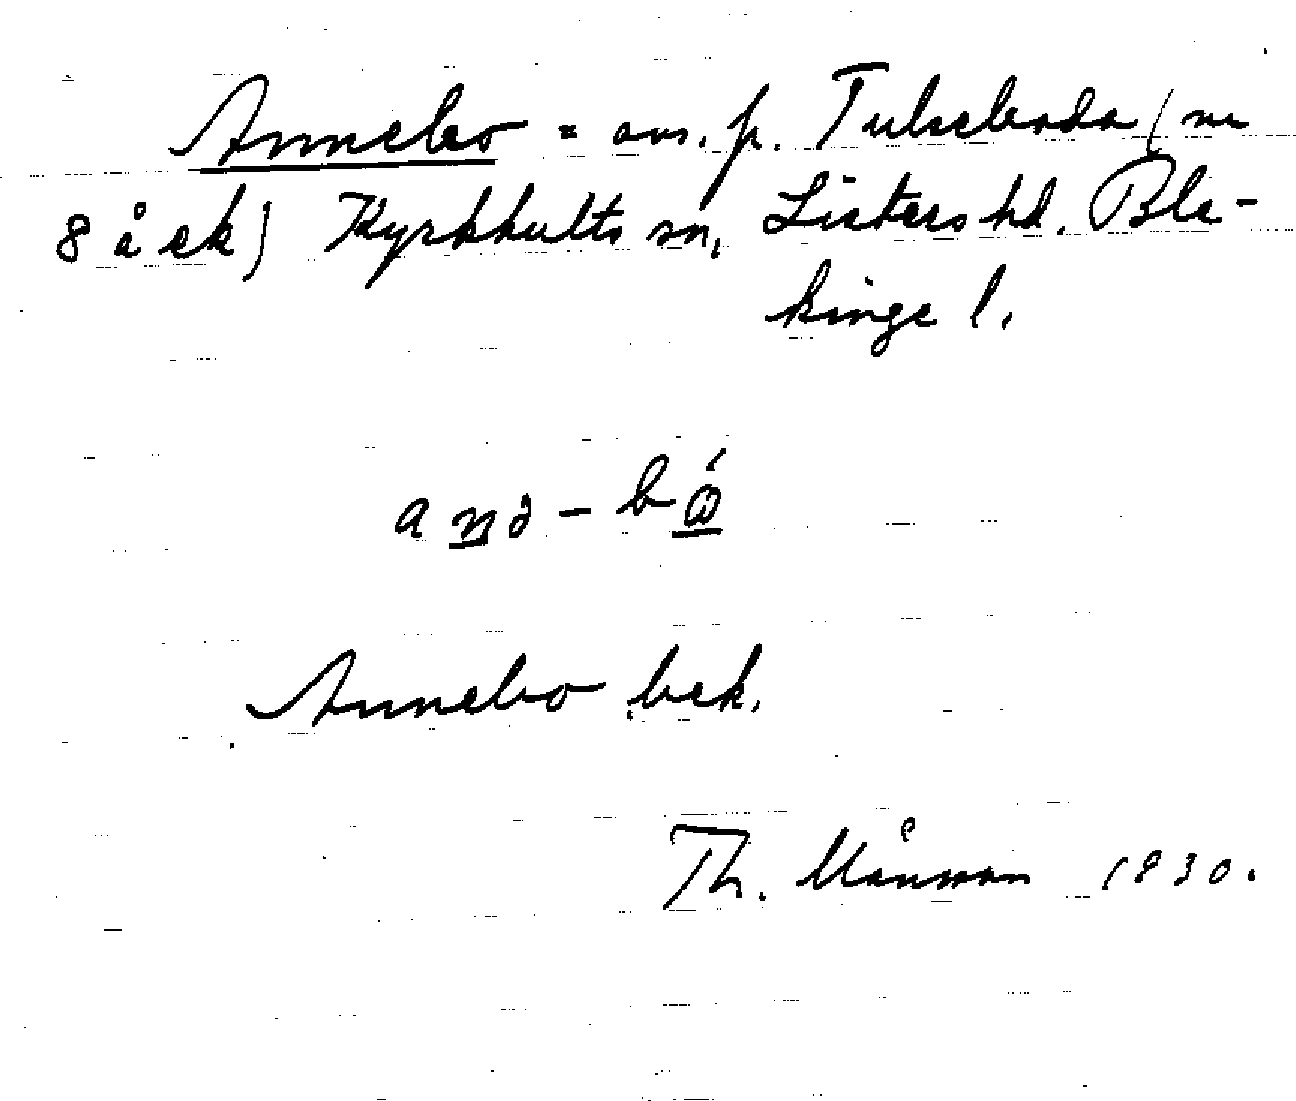 Annebo = avs. p. Tulseboda (nr
8 å ek) Kyrkhults sn, Listers hd. Ble-
kinge l.
anə - bó
Annebo bek.
Th. Månsson 1930.